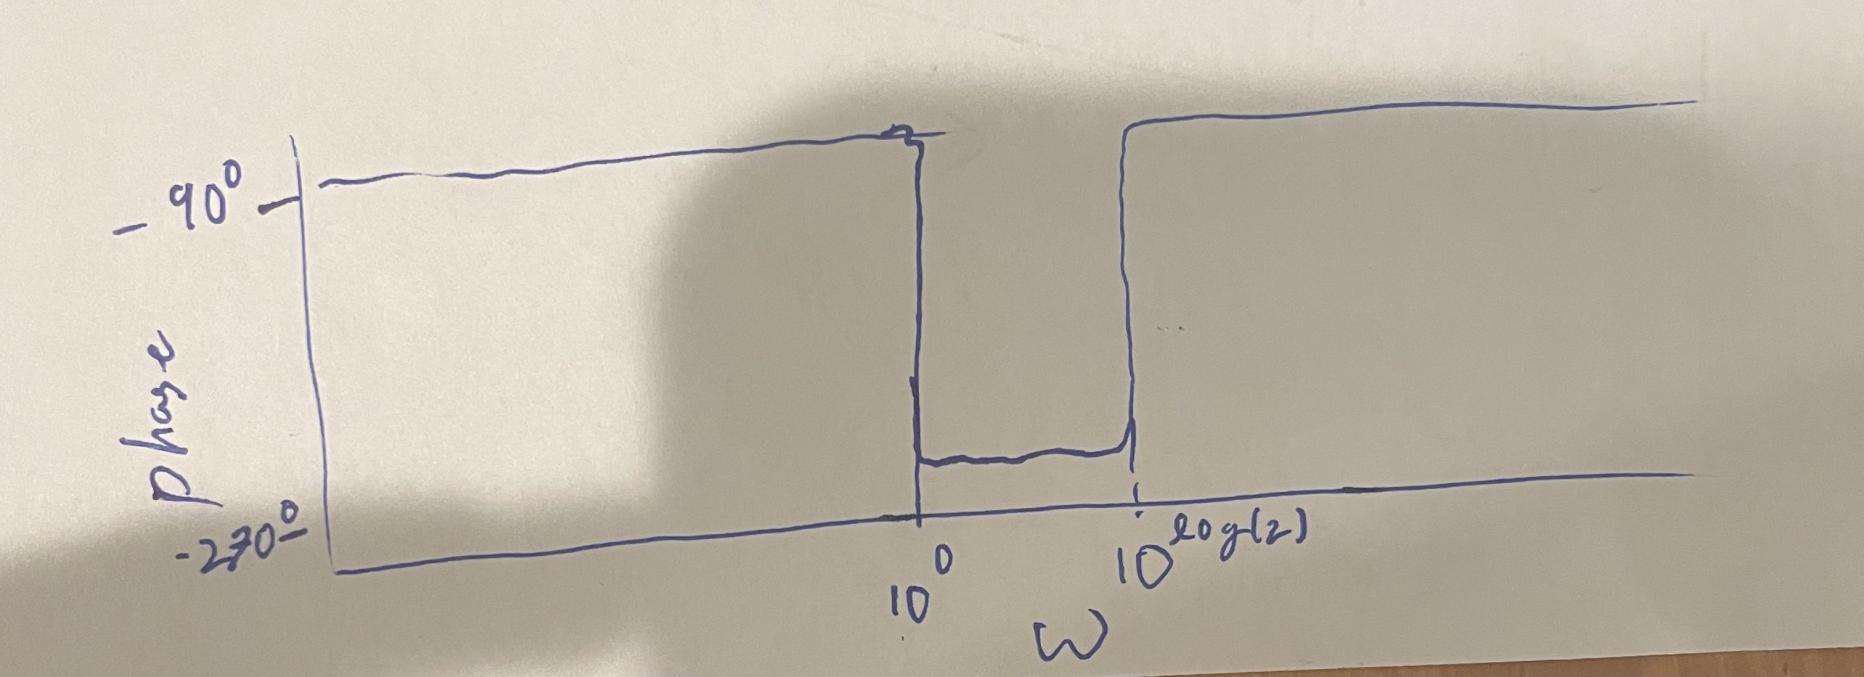 - 90°
phase
-270°
10⁰
10^log(2)
ω